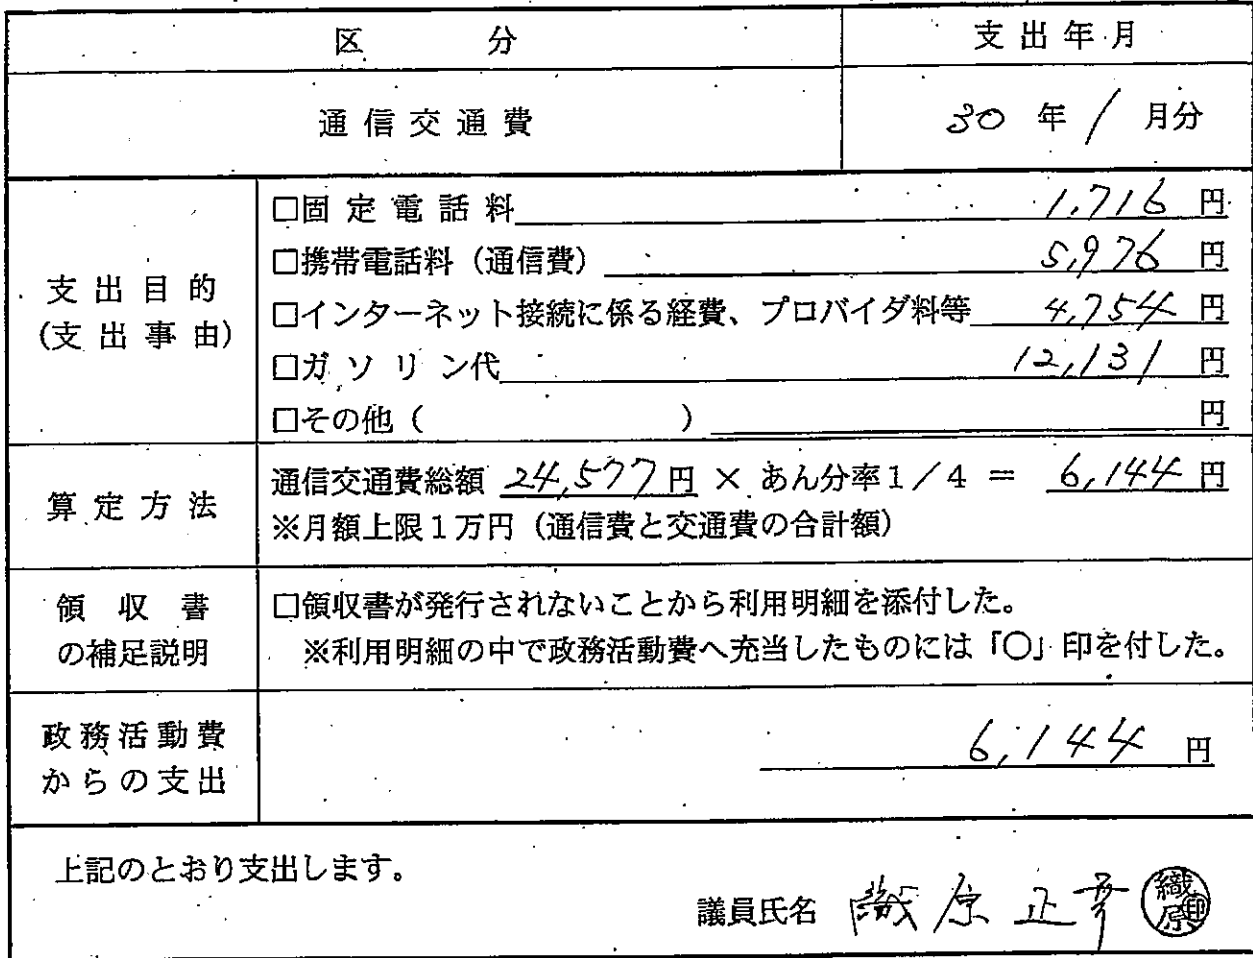 区　　　分
支出年月
通信交通費
30 年 1 月分
支出目的
(支出事由)
□固定電話料 1,716 円
□携帯電話料（通信費） 5,976 円
□インターネット接続に係る経費、プロバイダ料等 4,754 円
□ガソリン代 12,131 円
□その他（　　　　　　　） 円
算定方法
通信交通費総額 24,577円 × あん分率1／4 ＝ 6,144円
※月額上限1万円（通信費と交通費の合計額）
領収書
の補足説明
□領収書が発行されないことから利用明細を添付した。
※利用明細の中で政務活動費へ充当したものには「〇」印を付した。
政務活動費
からの支出
6,144 円
上記のとおり支出します。
議員氏名 織原正幸 織原印